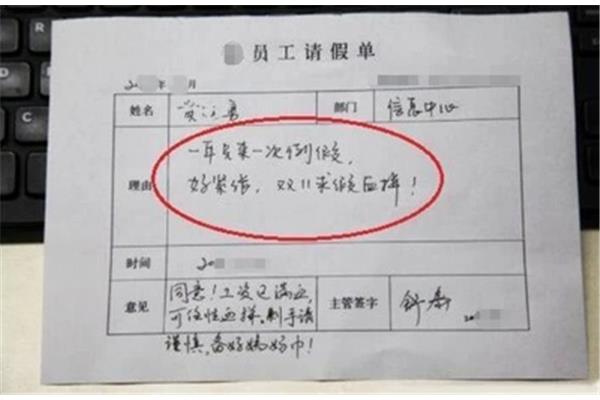 员工请假单
年 月
姓名 部门 信息中心
一年只来一次例假,
理由 好紧张,双11求假血拼!
时间 20
同意!工资已满血,
意见 可任性血拼。剁手请 主管签字
谨慎,备好妈妈巾!